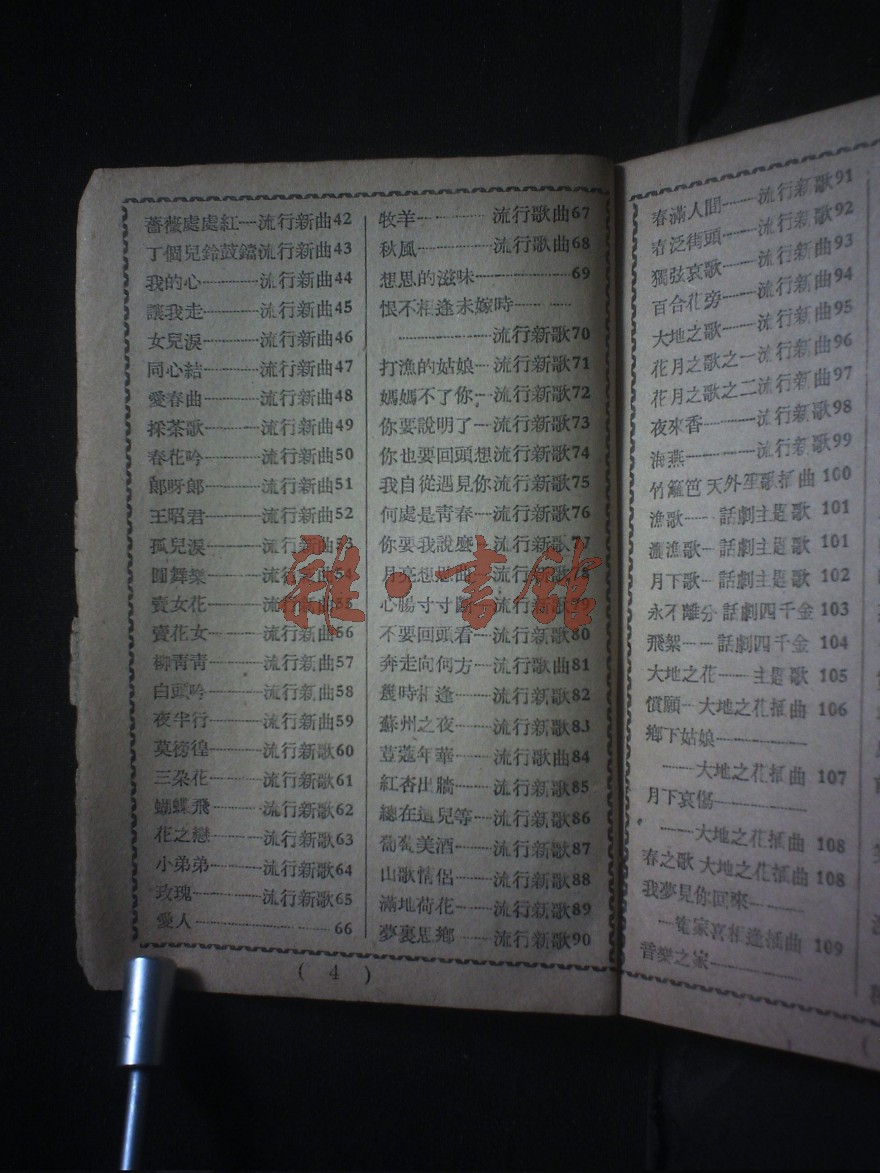 薔薇處處紅一流行新曲42
丁個兒鈴鼓鐺流行新曲43
我的心…………流行新曲44
讓我走…………流行新曲45
女兒淚…………流行新曲46
同心結…………流行新曲47
愛春曲…………流行新曲48
採茶歌…………流行新曲49
春花吟…………流行新曲50
郎呀郎…………流行新曲51
王昭君…………流行新曲52
孤兒淚…………流行新曲
圓舞樂…………流行之曲54
賣女花…………流行新曲55
賣花女…………流行新曲56
柳青青…………流行新曲57
白頭吟…………流行新曲58
夜半行…………流行新曲59
莫徬徨…………流行新歌60
三朵花…………流行新歌61
蝴蝶飛…………流行新歌62
花之戀…………流行新歌63
小弟弟…………流行新歌64
玫瑰…………流行新歌65
愛人…………66
牧羊…………流行歌曲67
秋風…………流行歌曲68
想思的滋味…………69
恨不相逢未嫁時…………
…………流行新歌70
打漁的姑娘…流行新歌71
媽媽不了你…流行新歌72
你要說明了…流行新歌73
你也要回頭想流行新歌74
我自從遇見你流行新歌75
何處是青春…流行新歌76
你要我說麼…流行新歌77
月亮想思曲…流行新歌78
心腸寸寸斷…流行新歌79
不要回頭看…流行新歌80
奔走向何方…流行歌曲81
幾時相逢……流行新歌82
蘇州之夜……流行新歌83
荳蔻年華……流行歌曲84
紅杏出牆……流行新歌85
總在這兒等…流行新歌86
葡萄美酒……流行新歌87
山歌情侶……流行新歌88
滿地荷花……流行新歌89
夢裏思鄉……流行新歌90
( 4 )
春滿人間……流行新歌91
春泛街頭……流行新歌92
獨弦哀歌……流行新曲93
百合花旁……流行新曲94
大地之歌……流行新曲95
花月之歌之一流行新曲96
花月之歌之二流行新曲97
夜來香………流行新歌98
海燕…………流行新歌99
竹籬笆 天外笙歌插曲 100
漁歌……話劇主題歌 101
漁歌…話劇主題歌 101
月下歌…話劇主題歌 102
永不離分 話劇四千金 103
飛絮……話劇四千金 104
大地之花……主題歌 105
償願…大地之花插曲 106
鄉下姑娘…………
……大地之花插曲 107
月下哀傷…………
……大地之花插曲 108
春之歌 大地之花插曲 108
我夢見你回來………
…冤家喜相逢插曲 109
音樂之家…………
雜·書館